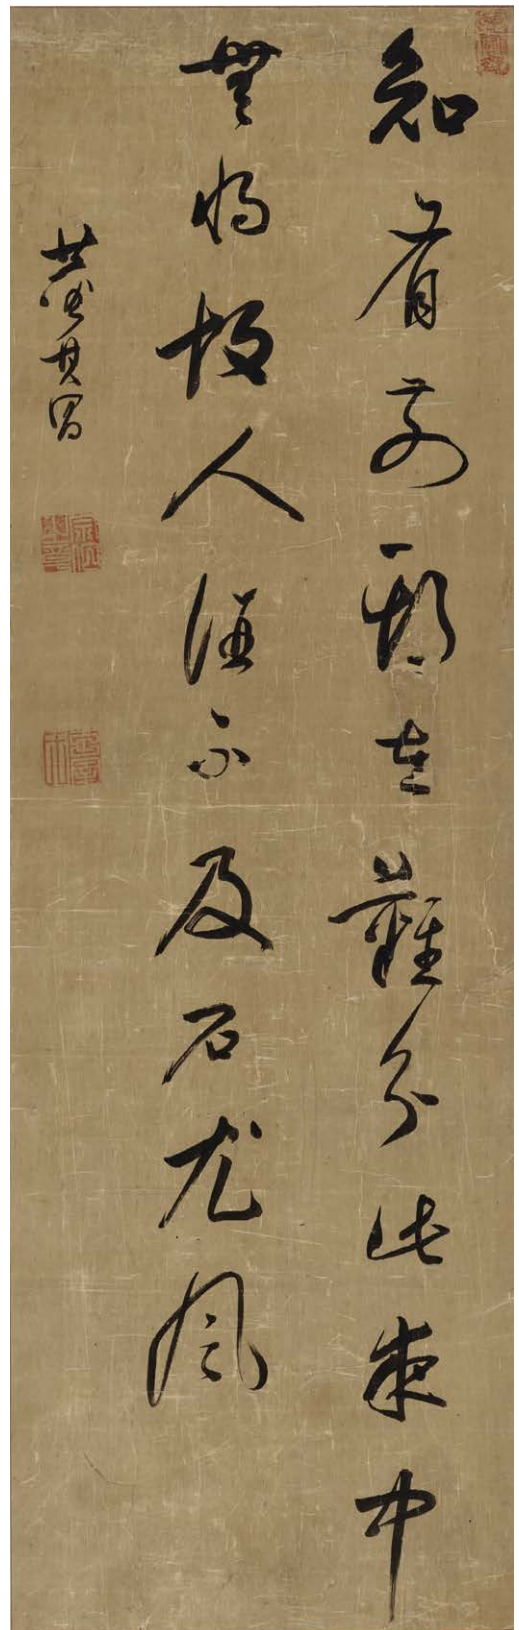 知有前期在難分此夜中
無將故人酒不及石尤風
董其昌